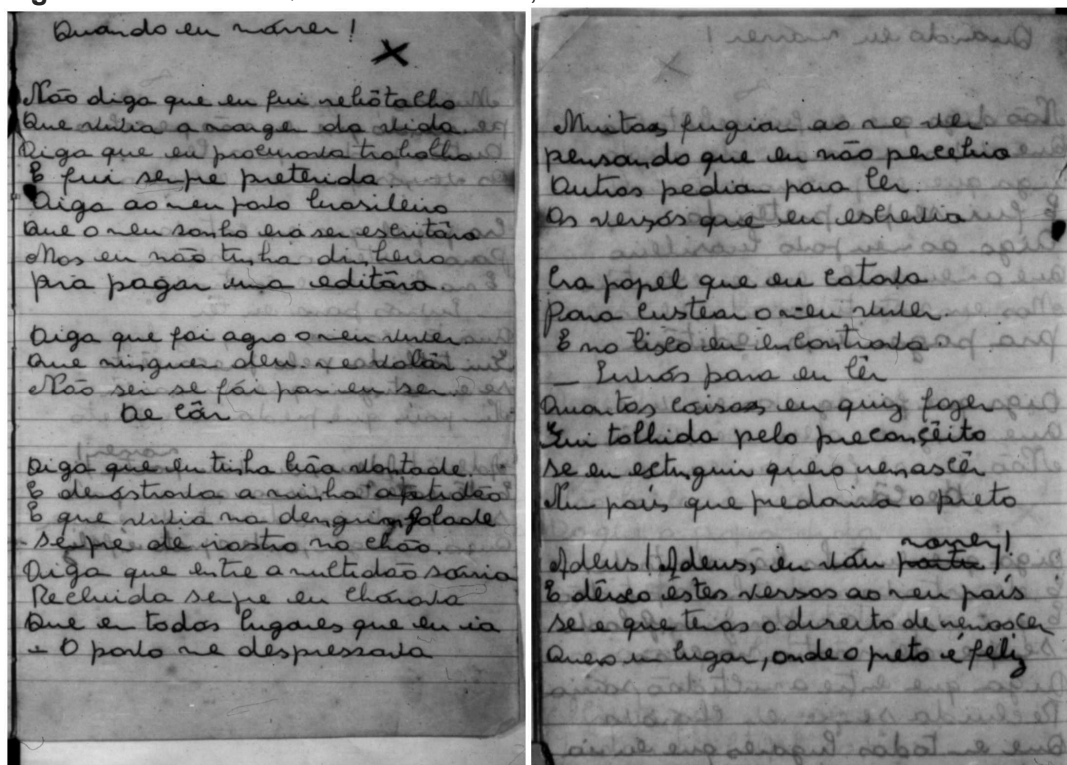 Quando eu morrer!
Não diga que eu fui rebótalho
Que vivia a marge da vida
Diga que eu procurava trabalho
E fui senpre preterida.
Diga ao meu povo brasileiro
Que o meu sonho era ser escritóra
Mas eu não tinha dinheiro
pra pagar uma editóra
Diga que foi agro o meu viver
Que ninguen deu-me valôr
Não sei se fói por eu ser
De côr
Diga que eu tinha bôa vontade
E demóstrava a minha aptidão
E que vivia na
-Senpre de rastro no chão.
Diga que entre a multidão sómia
Recluida senpre eu chórava
Que en todos lugares que eu ia
- O povo me despressava
Muitas fugian ao me ver
pensando que eu não percebia
Outros pedia para lêr.
Os versós que eu escrevia
Era papel que eu catava
Para custear o meu viver.
E no lixo eu encontrava
_ Livrós para eu lêr
Quantas coisas eu quiz fazer
Fui tolhida pelo preconçêito
Se eu extinguir quero renascêr
Num país que predomina o preto
morrer!
Adeus! Adeus, eu vóu !
E dêixo estes versos ao meu país
Se é que temos o direito de renascer
Quero um lugar, onde o preto é feliz